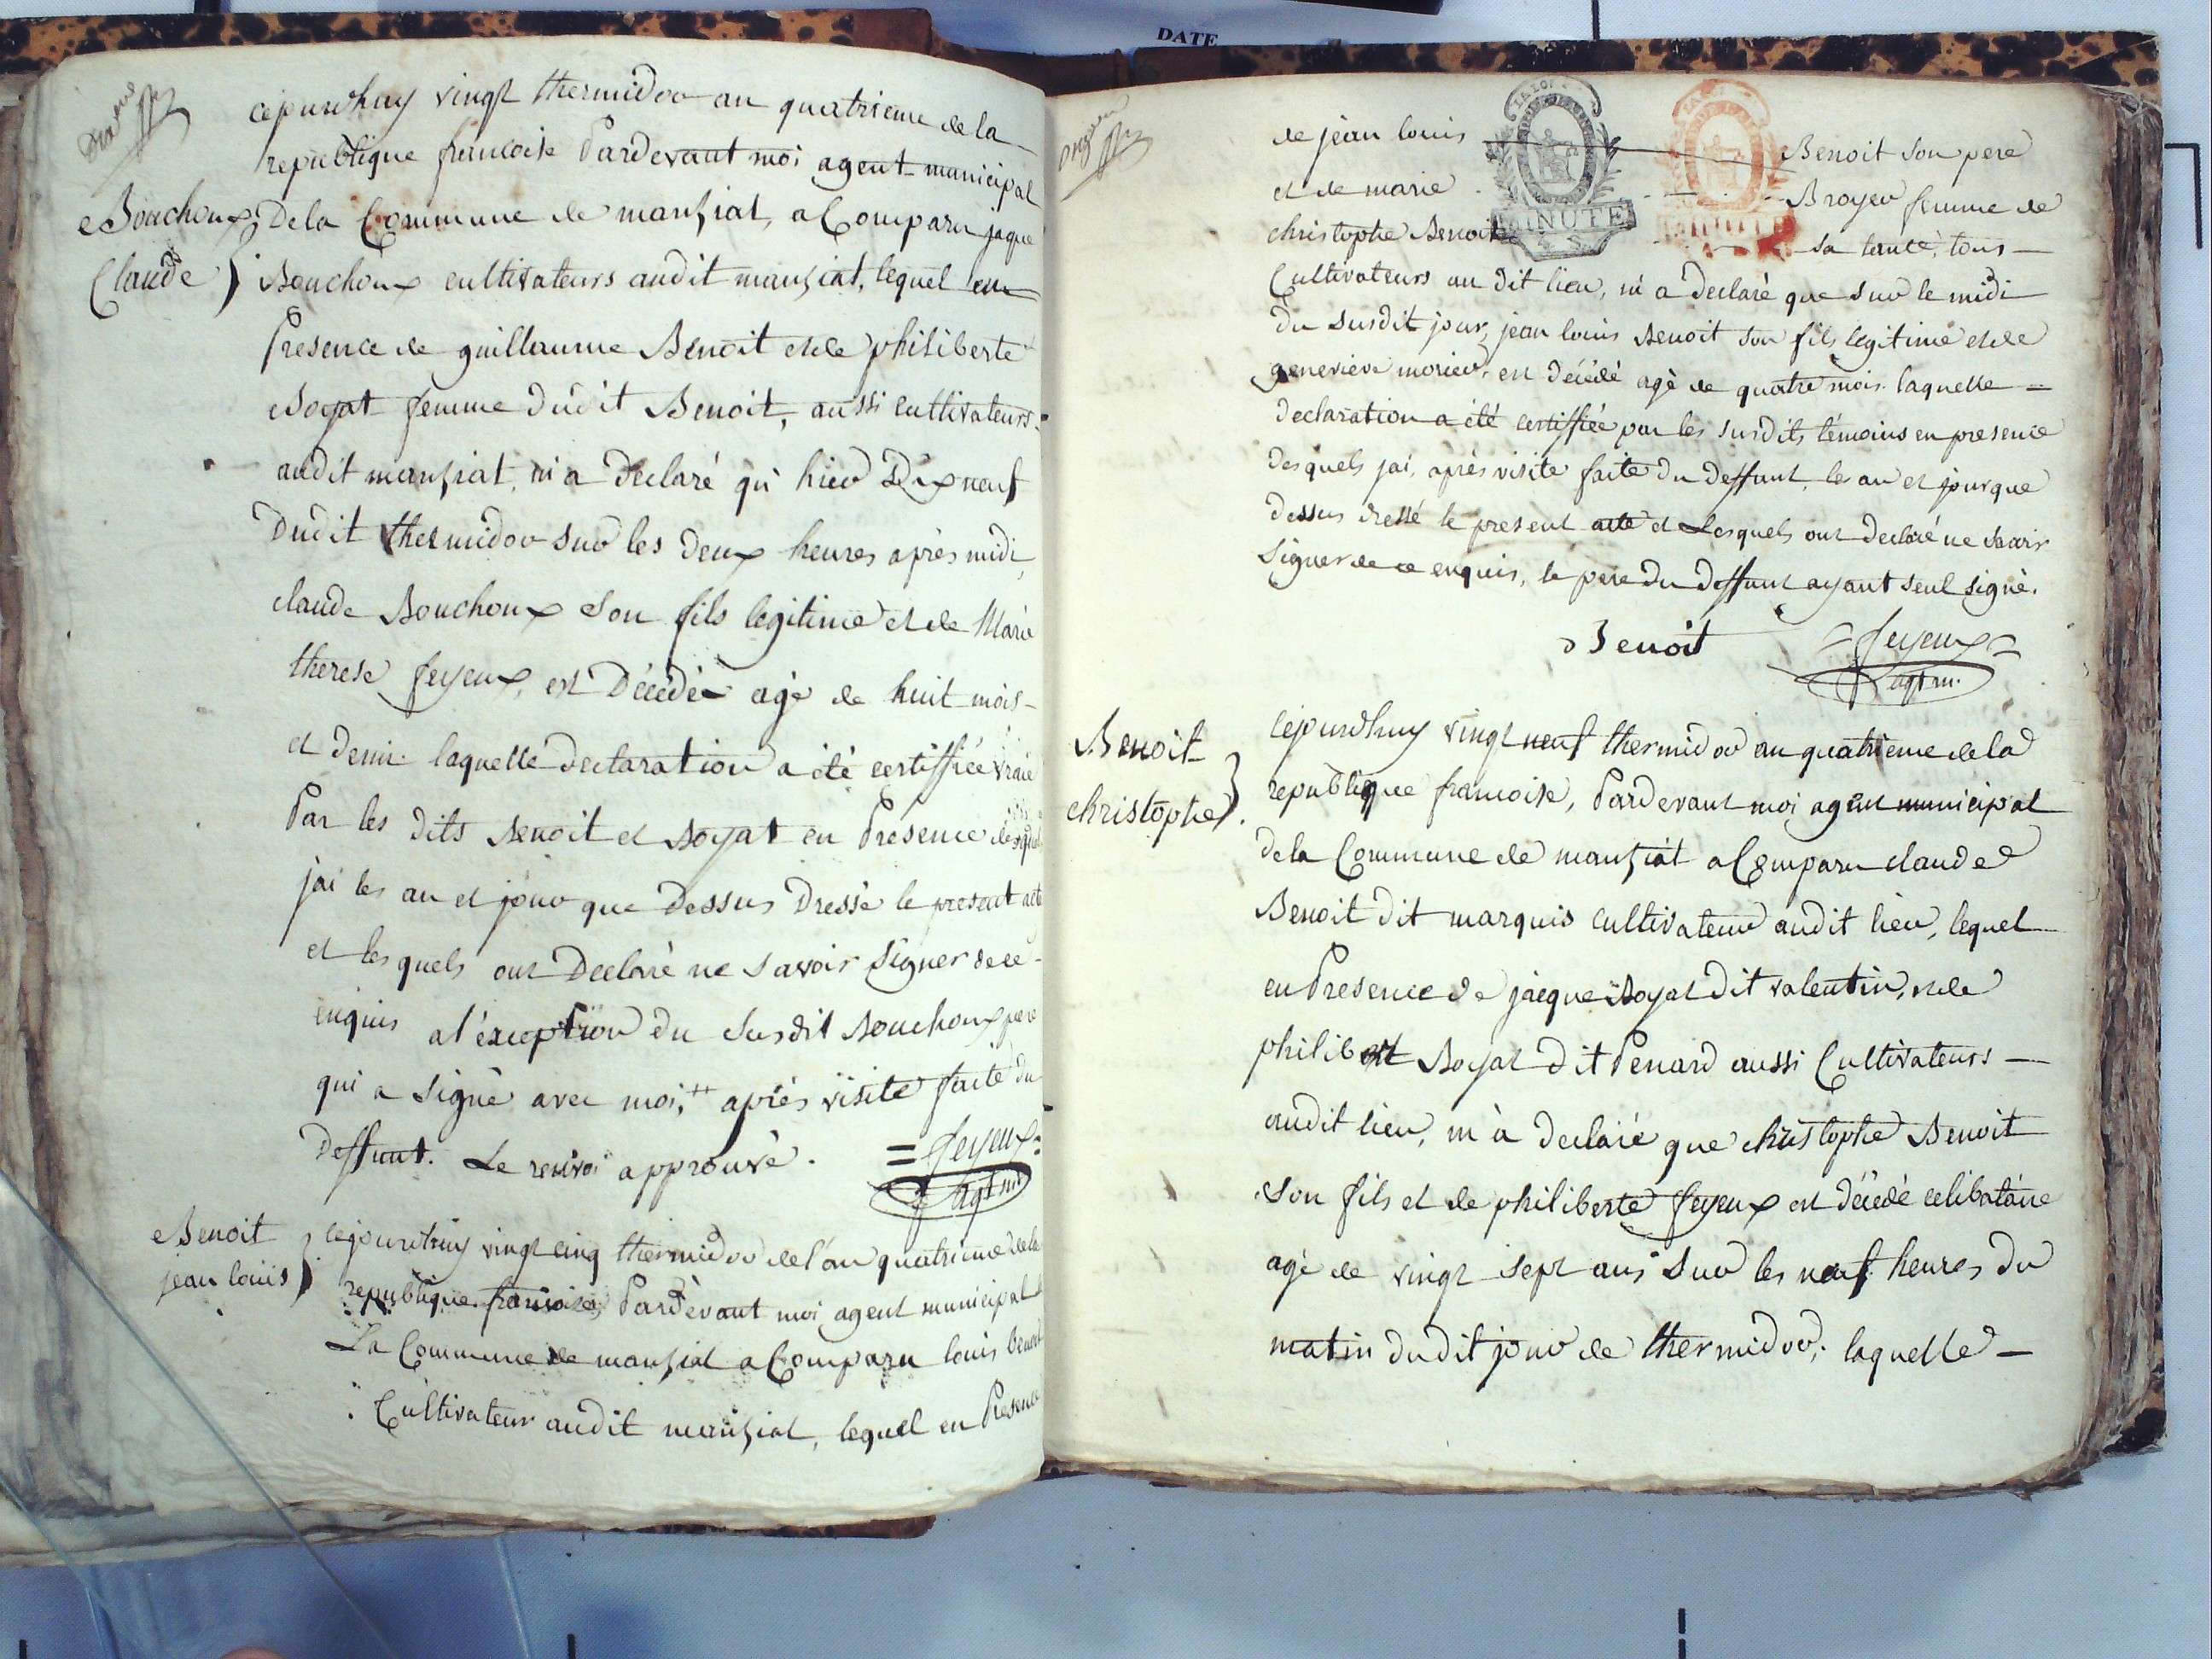 DATE
cejourdhuy vingt thermidor an quatrieme de la
republique francoise Pardevant moi agent municipal
Bouchoux
Claude
De la Commune de manziat, a Comparu jaque
Bouchoux cultivateurs audit manziat, lequel en
Presence de guillaume Benoit et de philiberte
Boyat femme dudit Benoit, aussi cultivateurs
audit manziat, m'a Declaré qu'hier Dix neuf
Dudit thermidor sur les deux heures après midi,
claude Bouchoux son fils legitime et de Marie
therese feyeux, est Décédé agé de huit mois
et demi. laquelle declaration a été certiffiée vraie
Par les dits Benoit et Boyat en Presence desquels
jai les an et jour que Dessus Dressé le present acte
et lesquels ont Declaré ne savoir signer de ce
enquis a l'éxception du susdit Bouchoux pere
qui a signé avec moi, ++ après visite faite du
deffunt. Le renvoi approuvé. = feyeux =
agt m.
Benoit
jean louis
cejourdhuy vingt cinq thermidor de l'an quatrieme de la
republique francoise, Pardevant moi agent municipal de
La Commune de manziat a Comparu louis benoit
Cultivateur audit manziat, lequel en Presence
de jean louis Benoit son pere
et de marie Broyer femme de
christophe Benoit sa tante, tous
LA LOI
MINUTE
Cultivateurs au dit lieu, m'a declaré que sur le midi
du susdit jour, jean louis Benoit son fils legitime et de
genevieve morier, est décédé agé de quatre mois. laquelle =
declaration a été certiffiée par les susdits témoins en presence
desquels jai, après visite faite du deffunt, les an et jour que
dessus dressé le present acte et lesquels ont declaré ne savoir
signer de ce enquis, le pere du deffunt ayant seul signé.
Benoit = feyeux =
agt m.
Benoit
christophe
cejourdhuy vingt neuf thermidor an quatrieme de la
republique francoise, Pardevant moi agent municipal
de la Commune de manziat a Comparu claude
Benoit dit marquis cultivateur audit lieu, lequel
en Presence de jacque Boyat dit valentin, et de
philibert Boyat dit Penard aussi Cultivateurs
audit lieu, m'a declaré que christophe Benoit
son fils et de philiberte feyeux est décédé celibataire
agé de vingt sept ans sur les neuf heures du
matin dudit jour de thermidor; laquelle